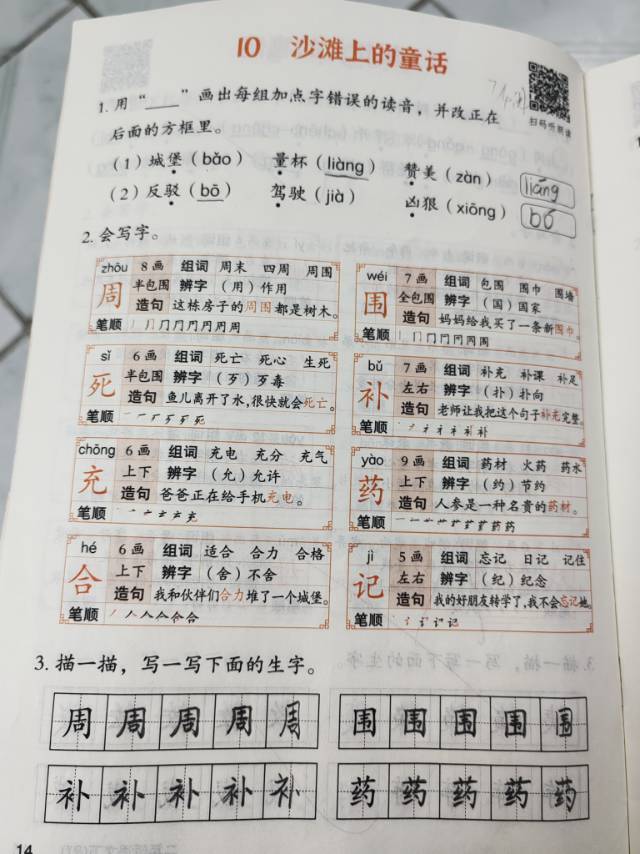 10 沙滩上的童话
扫码听朗读
1. 用“____”画出每组加点字错误的读音，并改正在
后面的方框里。
（1）城堡（bǎo） 量杯（liàng） 赞美（zàn） liáng
（2）反驳（bō） 驾驶（jià） 凶狠（xiōng） bó
2. 会写字。
zhōu 8画 组词 周末 四周 周围
周 半包围 辨字 （用）作用
造句 这栋房子的周围都是树木。
笔顺
wéi 7画 组词 包围 围巾 围墙
围 全包围 辨字 （国）国家
造句 妈妈给我买了一条新围巾。
笔顺
sǐ 6画 组词 死亡 死心 生死
死 半包围 辨字 （歹）歹毒
造句 鱼儿离开了水,很快就会死亡。
笔顺
bǔ 7画 组词 补充 补课 补足
补 左右 辨字 （扑）扑向
造句 老师让我把这个句子补充完整。
笔顺
chōng 6画 组词 充电 充分 充气
充 上下 辨字 （允）允许
造句 爸爸正在给手机充电。
笔顺
yào 9画 组词 药材 火药 药水
药 上下 辨字 （约）节约
造句 人参是一种名贵的药材。
笔顺
hé 6画 组词 适合 合力 合格
合 上下 辨字 （舍）不舍
造句 我和伙伴们合力堆了一个城堡。
笔顺
jì 5画 组词 忘记 日记 记住
记 左右 辨字 （纪）纪念
造句 我的好朋友转学了,我不会忘记她。
笔顺
3. 描一描，写一写下面的生字。
周 周 周 周 周 围 围 围 围 围
补 补 补 补 补 药 药 药 药 药
14